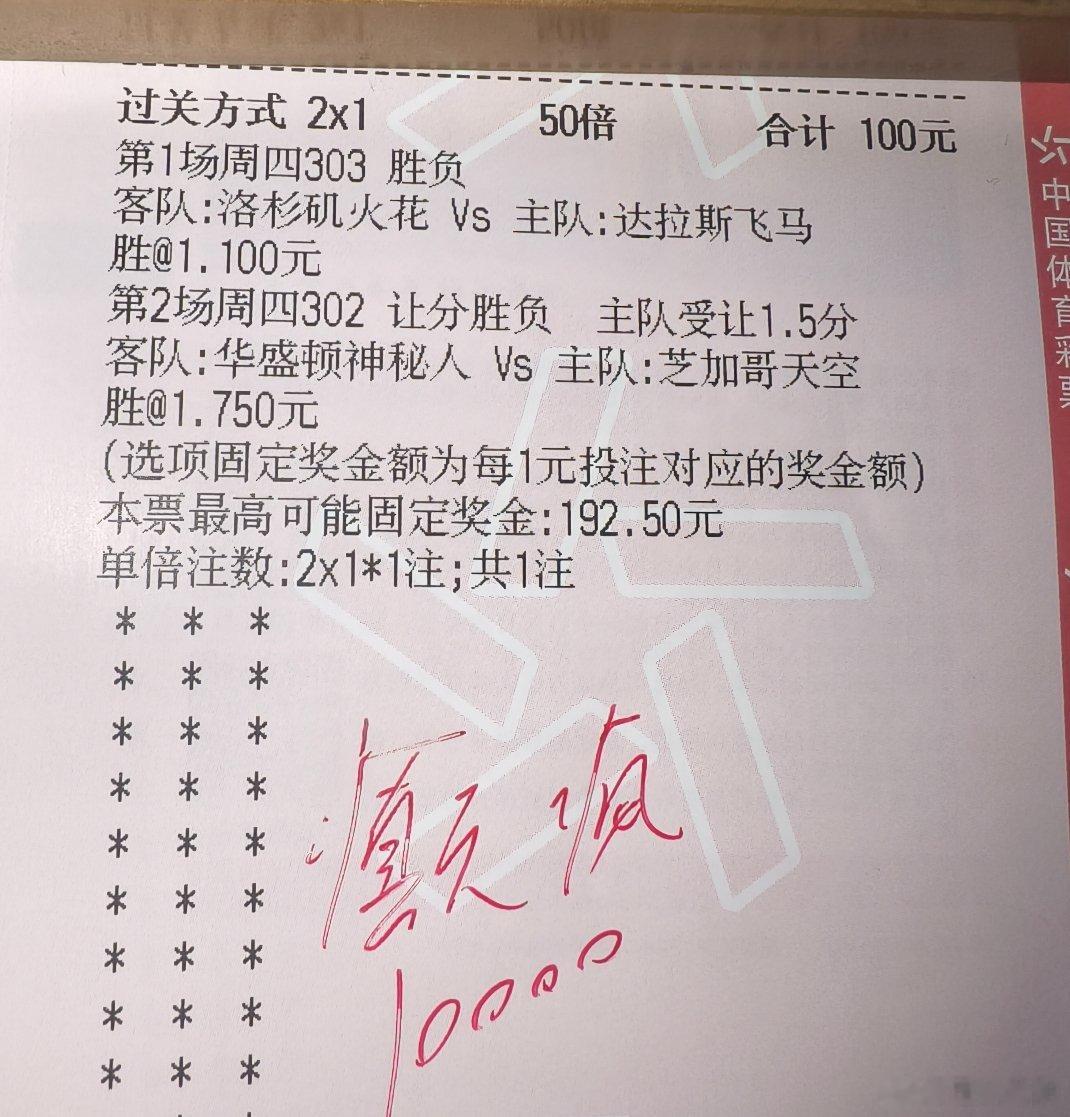 过关方式 2x1 50倍 合计 100元
第1场周四303 胜负
客队:洛杉矶火花 Vs 主队:达拉斯飞马
胜@1.100元
第2场周四302 让分胜负 主队受让1.5分
客队:华盛顿神秘人 Vs 主队:芝加哥天空
胜@1.750元
(选项固定奖金额为每1元投注对应的奖金额)
本票最高可能固定奖金:192.50元
单倍注数:2x1*1注;共1注
* * *
* * *
* * *
* * *
* * *
* * *
* * *
* * *
* * *
癫疯
10000
中国体育彩票